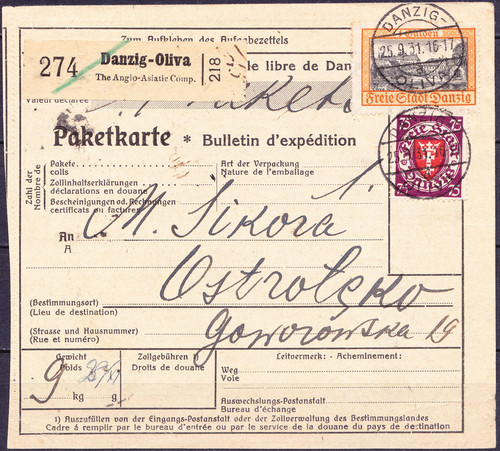 Zum Aufkleben des Aufgabezettels
274
Danzig-Oliva
The Anglo-Asiatic Comp.
218
le libre de Dan
Valeur déclarée
Paketkarte * Bulletin d'expédition
Zahl der
Nombre de
Pakete
colis
Zollinhaltserklärungen
déclarations en douane
Bescheinigungen od. Rechnungen
certificats ou factures
Art der Verpackung
Nature de l'emballage
An
A
M. Sikora
Ostrołęko
(Bestimmungsort)
(Lieu de destination)
Goworowska 19
(Strasse und Hausnummer)
(Rue et numéro)
Gewicht
Poids
9
kg g
Zollgebühren 1)
Droits de douane
Leitvermerk: - Acheminement:
Weg
Voie
Auswechslungs-Postanstalt
Bureau d'échange
1) Auszufüllen von der Eingangs-Postanstalt oder der Zollverwaltung des Bestimmungslandes
Cadre à remplir par le bureau d'entrée ou par le service de la douane du pays de destination
DANZIG-
25.9.31.16-17
OLIVA
Gulden
Freie Stadt Danzig
75
75
Freie Stadt
Danzig